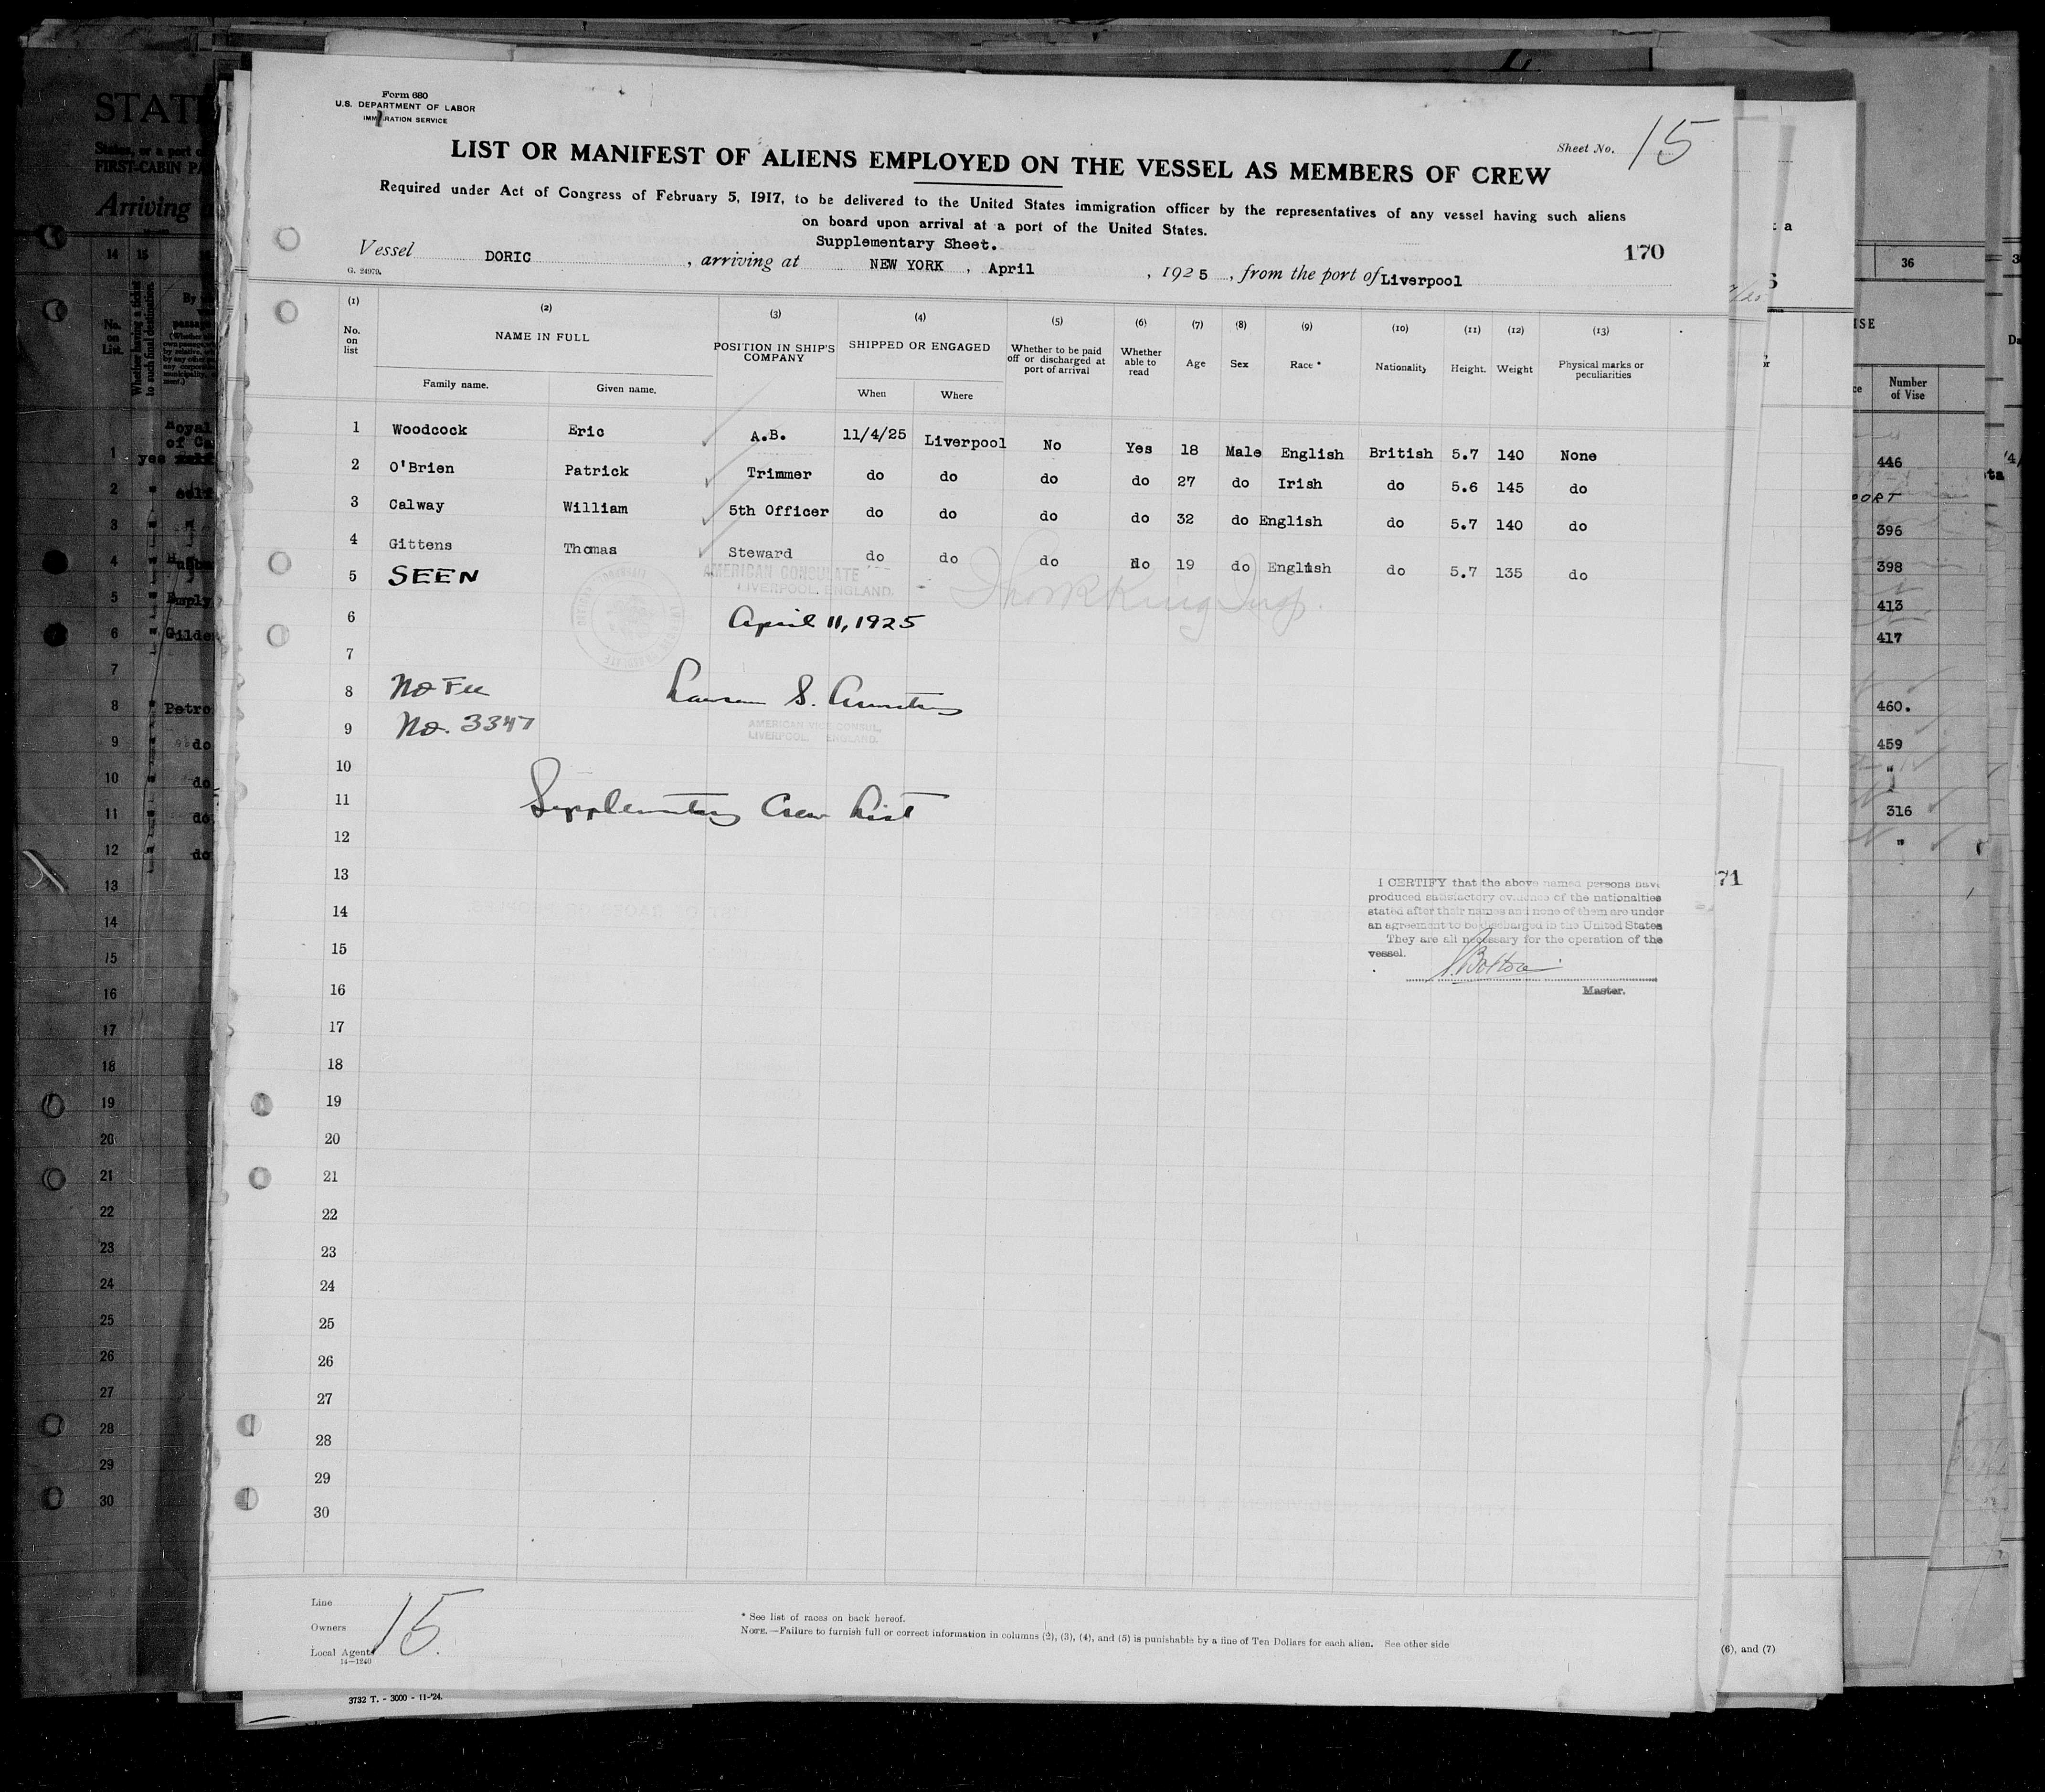 Form 680
U.S. DEPARTMENT OF LABOR
IMMIGRATION SERVICE
Sheet No. 15
LIST OR MANIFEST OF ALIENS EMPLOYED ON THE VESSEL AS MEMBERS OF CREW
Required under Act of Congress of February 5, 1917, to be delivered to the United States immigration officer by the representatives of any vessel having such aliens
on board upon arrival at a port of the United States.
Supplementary Sheet.
170
Vessel DORIC, arriving at NEW YORK, April, 1925, from the port of Liverpool
G. 24979.
(1) (2) (3) (4) (5) (6) (7) (8) (9) (10) (11) (12) (13)
No. on list NAME IN FULL Family name. Given name. POSITION IN SHIP'S COMPANY SHIPPED OR ENGAGED When Where Whether to be paid off or discharged at port of arrival Whether able to read Age Sex Race * Nationality Height. Weight Physical marks or peculiarities
1 Woodcock Eric A.B. 11/4/25 Liverpool No Yes 18 Male English British 5.7 140 None
2 O'Brien Patrick Trimmer do do do do 27 do Irish do 5.6 145 do
3 Calway William 5th Officer do do do do 32 do English do 5.7 140 do
4 Gittens Thomas Steward do do do do 19 do English do 5.7 135 do
5 SEEN AMERICAN CONSULATE
LIVERPOOL, ENGLAND.
6 April 11, 1925
7
8 No Fee S.
9 No. 3347 AMERICAN VICE CONSUL,
LIVERPOOL, ENGLAND.
10
11 Supplementary Crew List
12
13
14
15
16
17
18
19
20
21
22
23
24
25
26
27
28
29
30
I CERTIFY that the above named persons have
produced satisfactory evidence of the nationalties
stated after their names and none of them are under
an agreement to be discharged in the United States
They are all necessary for the operation of the
vessel.
Master.
Line
Owners
Local Agents 15.
14—1240
* See list of races on back hereof.
NOTE.—Failure to furnish full or correct information in columns (2), (3), (4), and (5) is punishable by a fine of Ten Dollars for each alien. See other side
3732 T. - 3000 - 11-'24.
STAT
States, or a port
FIRST-CABIN
Arriving
14 15
No. on List.
Whether having a ticket to such final destination.
1 yes
2
3
4
5
6 Gilde
7
8 Petro
9 do
10 do
11 do
12 do
13
14
15
16
17
18
19
20
21
22
23
24
25
26
27
28
29
30
36
Number of Vise
446
396
398
413
417
460.
459
"
316
"
71
(6), and (7)